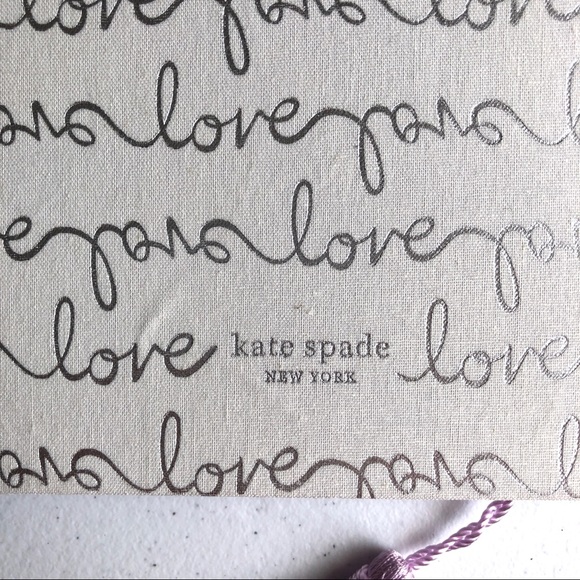 love love love
love love
love love
love kate spade love
NEW YORK
love love